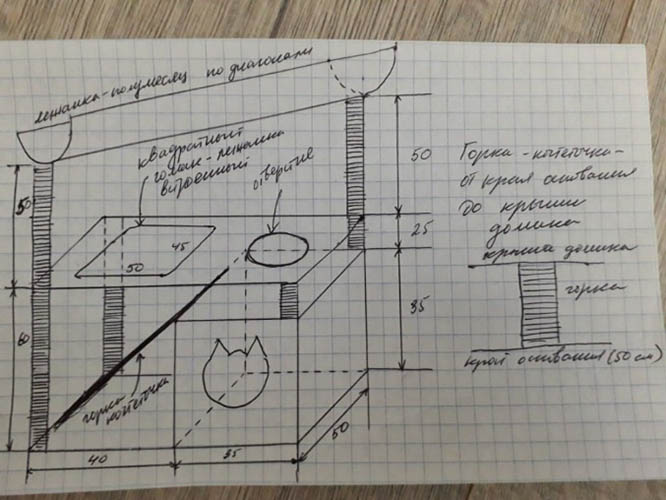 лежанка-полумесяц по диагонали
квадратный
гамак-лежанка
встроенный
отверстие
50
45
50
50
25
35
60
горка
когтеточка
40
35
50
Горка-когтеточка-
от края основания
до крыши
домика
крыша домика
горка
край основания (50 см)